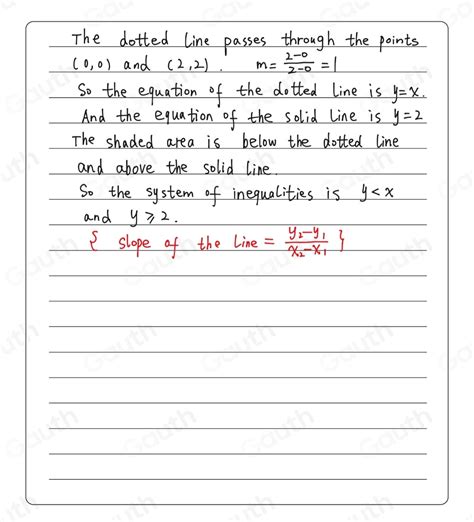 The dotted line passes through the points
(0,0) and (2,2). m = \frac{2-0}{2-0} = 1
So the equation of the dotted line is y=x.
And the equation of the solid line is y=2
The shaded area is below the dotted line
and above the solid line.
So the system of inequalities is y<x
and y⩾2.
{ slope of the line = \frac{y₂-y₁}{x₂-x₁} }
Gauth